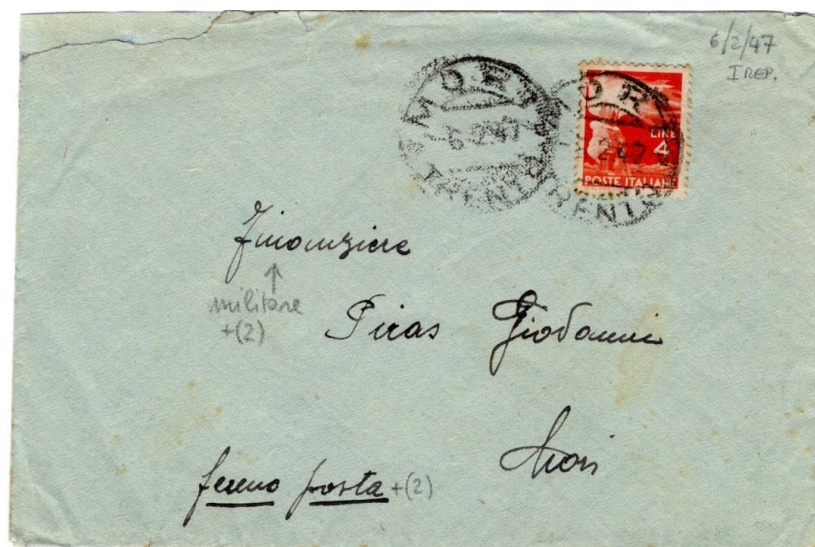 6/2/47
I REP.
MORI
6-2-47
TRENTO
MORI
2.47
TRENTO
LIRE
4
POSTE ITALIANE
Finanziere
↑
militare
+(2)
Piras Giovanni
Mori
fermo posta +(2)